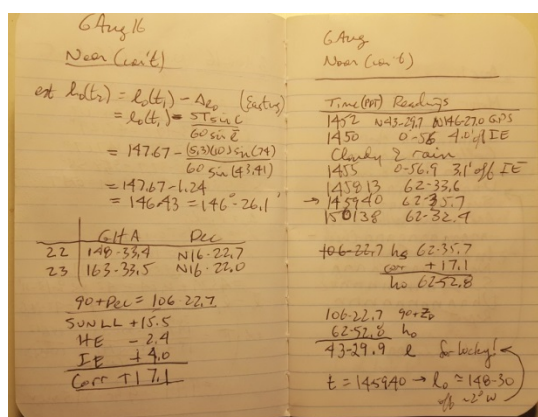 6 Aug 16
Noon (con't)
est lo(t2) = lo(t1) - Δlo (Easting)
= lo(t1) - ST sin C
60 sin l
= 147.67 - (5.3)(60) sin (74)
60 sin (43.41)
= 147.67 - 1.24
= 146.43 = 146° - 26.1'
GHA Dec
22 148-33.4 N16-22.7
23 163-33.5 N16-22.0
90+Dec = 106-22.7
SUN LL +15.5
HE - 2.4
IE + 4.0
Corr +17.1
6 Aug
Noon (con't)
Time (PDT) Readings
1452 N43-29.7 W146-27.0 GPS
1450 0-56 4.0' off IE
Cloudy & rain
1455 0-56.9 3.1' off IE
145813 62-33.6
→ 145940 62-35.7
150138 62-32.4
106-22.7 hs 62-35.7
corr +17.1
ho 62-52.8
106-22.7 90+
62-52.8 ho
43-29.9 l So lucky!
t = 145940 → lo ≈ 148-30
off ~2° W